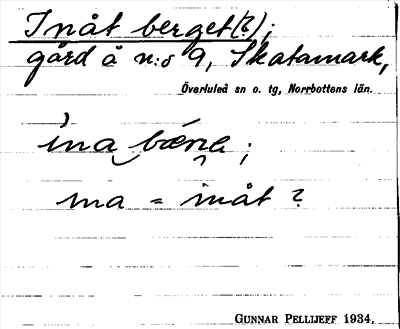 Inåt berget(?);
gård å n:o 9, Skatamark,
Överluleå sn o. tg, Norrbottens län.
ina bærɛ ;
ina = inåt ?
GUNNAR PELLIJEFF 1934.